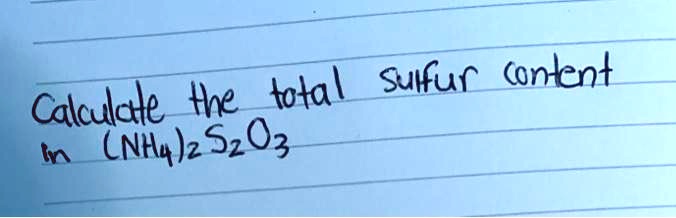 Calculate the total sulfur content
in (NH4)2 S2O3